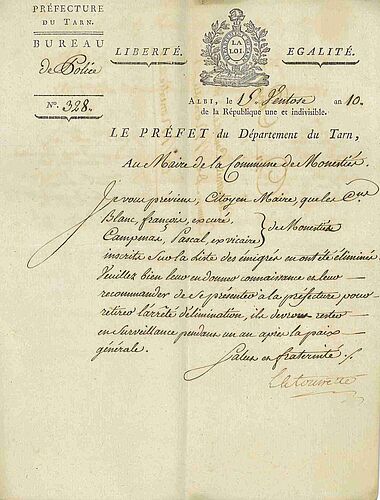 PRÉFECTURE
DU TARN.
BUREAU
de Police
N.° 328.
LIBERTÉ.
LA
LOI.
EGALITÉ.
ALBI, le 15 Ventose an 10.
de la République une et indivisible.
LE PRÉFET du Département du Tarn,
Au Maire de la Commune de Monestiés.
Je vous préviens, Citoyen Maire, que les C.ens
Blanc, françois, excuré,
Campmas, Pascal, exvicaire
de Monestiés
inscrits Sur la Liste des émigrés en ont été éliminés
Veuillez bien leur en donner connaissance et leur
recommander de Se présenter à la préfecture pour
retirer l'arrêté d'élimination, ils devront rester
en Surveillance pendant un an après la paix
générale.
Salut et fraternité /.
Latourette